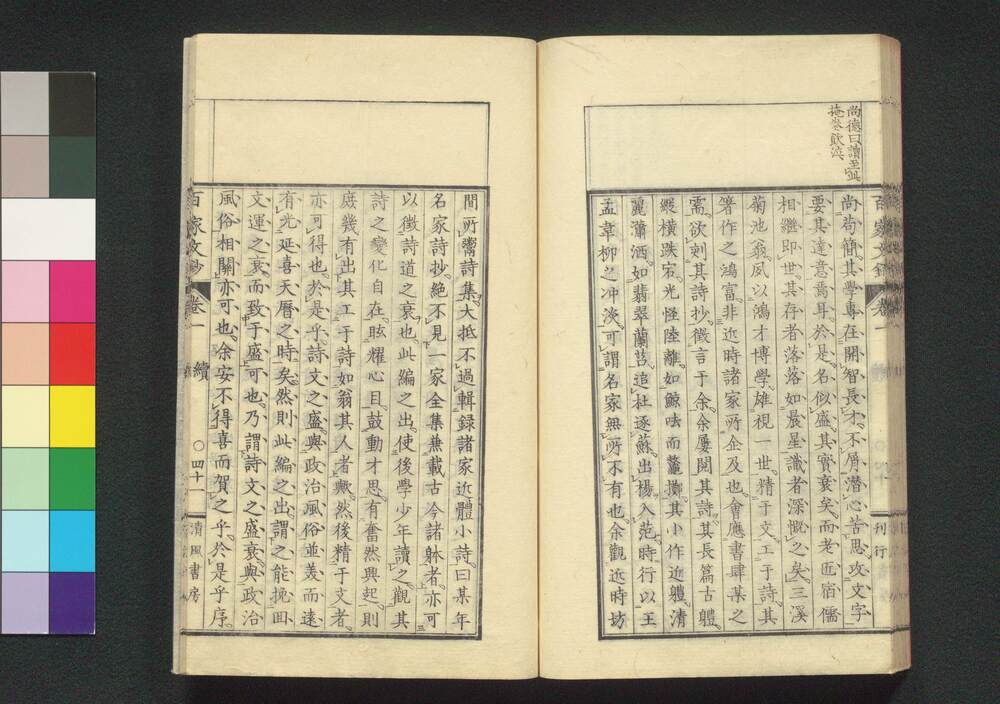 尚德曰讀至此
掩卷歎
尚苟簡其學專在開智長才不屑潛心苦思攻文字
要其達意焉耳於是名似盛其實衰矣而老匠宿儒
相繼即世其存者落落如晨星識者深慨之矣三溪
菊池翁夙以鴻才博學雄視一世精于文工于詩其
著作之鴻富非近時諸家所企及也會應書肆某之
需欲刺其詩抄徵言于余余屢閱其詩其長篇古軆
縱橫跌宕光怪陸離如鯨呿而鼇擲其小作近軆清
麗瀟洒如翡翠蘭苕追杜逐蘇出楊入范時行以王
孟韋柳之冲淡可謂名家無所不有也余觀近時坊
間所鬻詩集大抵不過輯録諸家近體小詩曰某年
名家詩抄絶不見一家全集兼載古今諸躰者亦可
以徵詩道之衰也此編之出使後學少年讀之觀其
詩之變化自在眩燿心目鼓動才思有奮然興起則
庶幾有出其工于詩如翁其人者歟然後精于文者
亦可得也於是乎詩文之盛與政治風俗並美而遠
有光延喜天曆之時矣然則此編之出謂之能挽回
文運之衰而致于盛可也乃謂詩文之盛衰與政治
風俗相關亦可也余安不得喜而賀之乎於是乎序
百家文鈔 卷一 續 〇四十一 清風書房